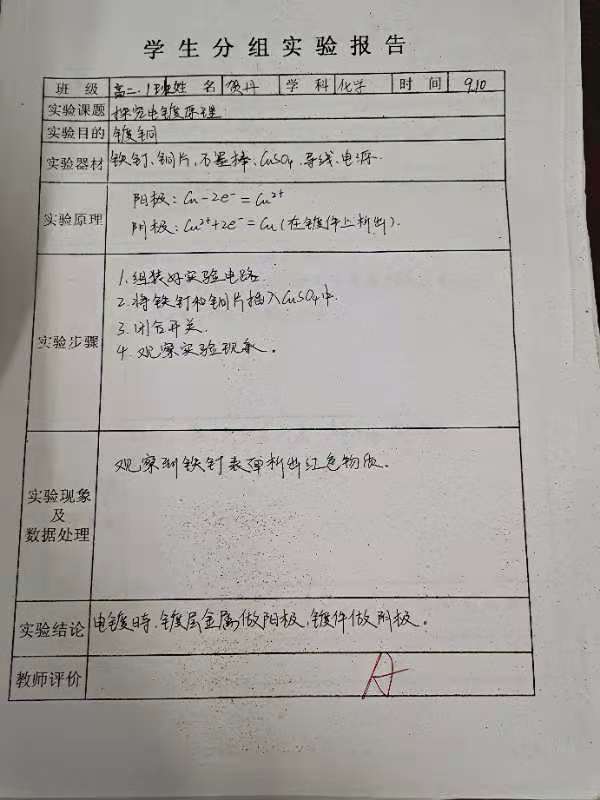 学生分组实验报告
班 级 高二.1班 姓 名 侯丹 学 科 化学 时 间 9.10
实验课题 探究电镀原理
实验目的 镀铜
实验器材 铁钉、铜片、石墨棒、CuSO₄、导线、电源.
实验原理
阳极：Cu-2e⁻=Cu²⁺
阴极：Cu²⁺+2e⁻=Cu(在镀件上析出).
实验步骤
1.组装好实验电路.
2.将铁钉和铜片插入CuSO₄中.
3.闭合开关.
4.观察实验现象。
实验现象
及
数据处理
观察到铁钉表面析出红色物质.
实验结论 电镀时.镀层金属做阳极,镀件做阴极。
教师评价 A